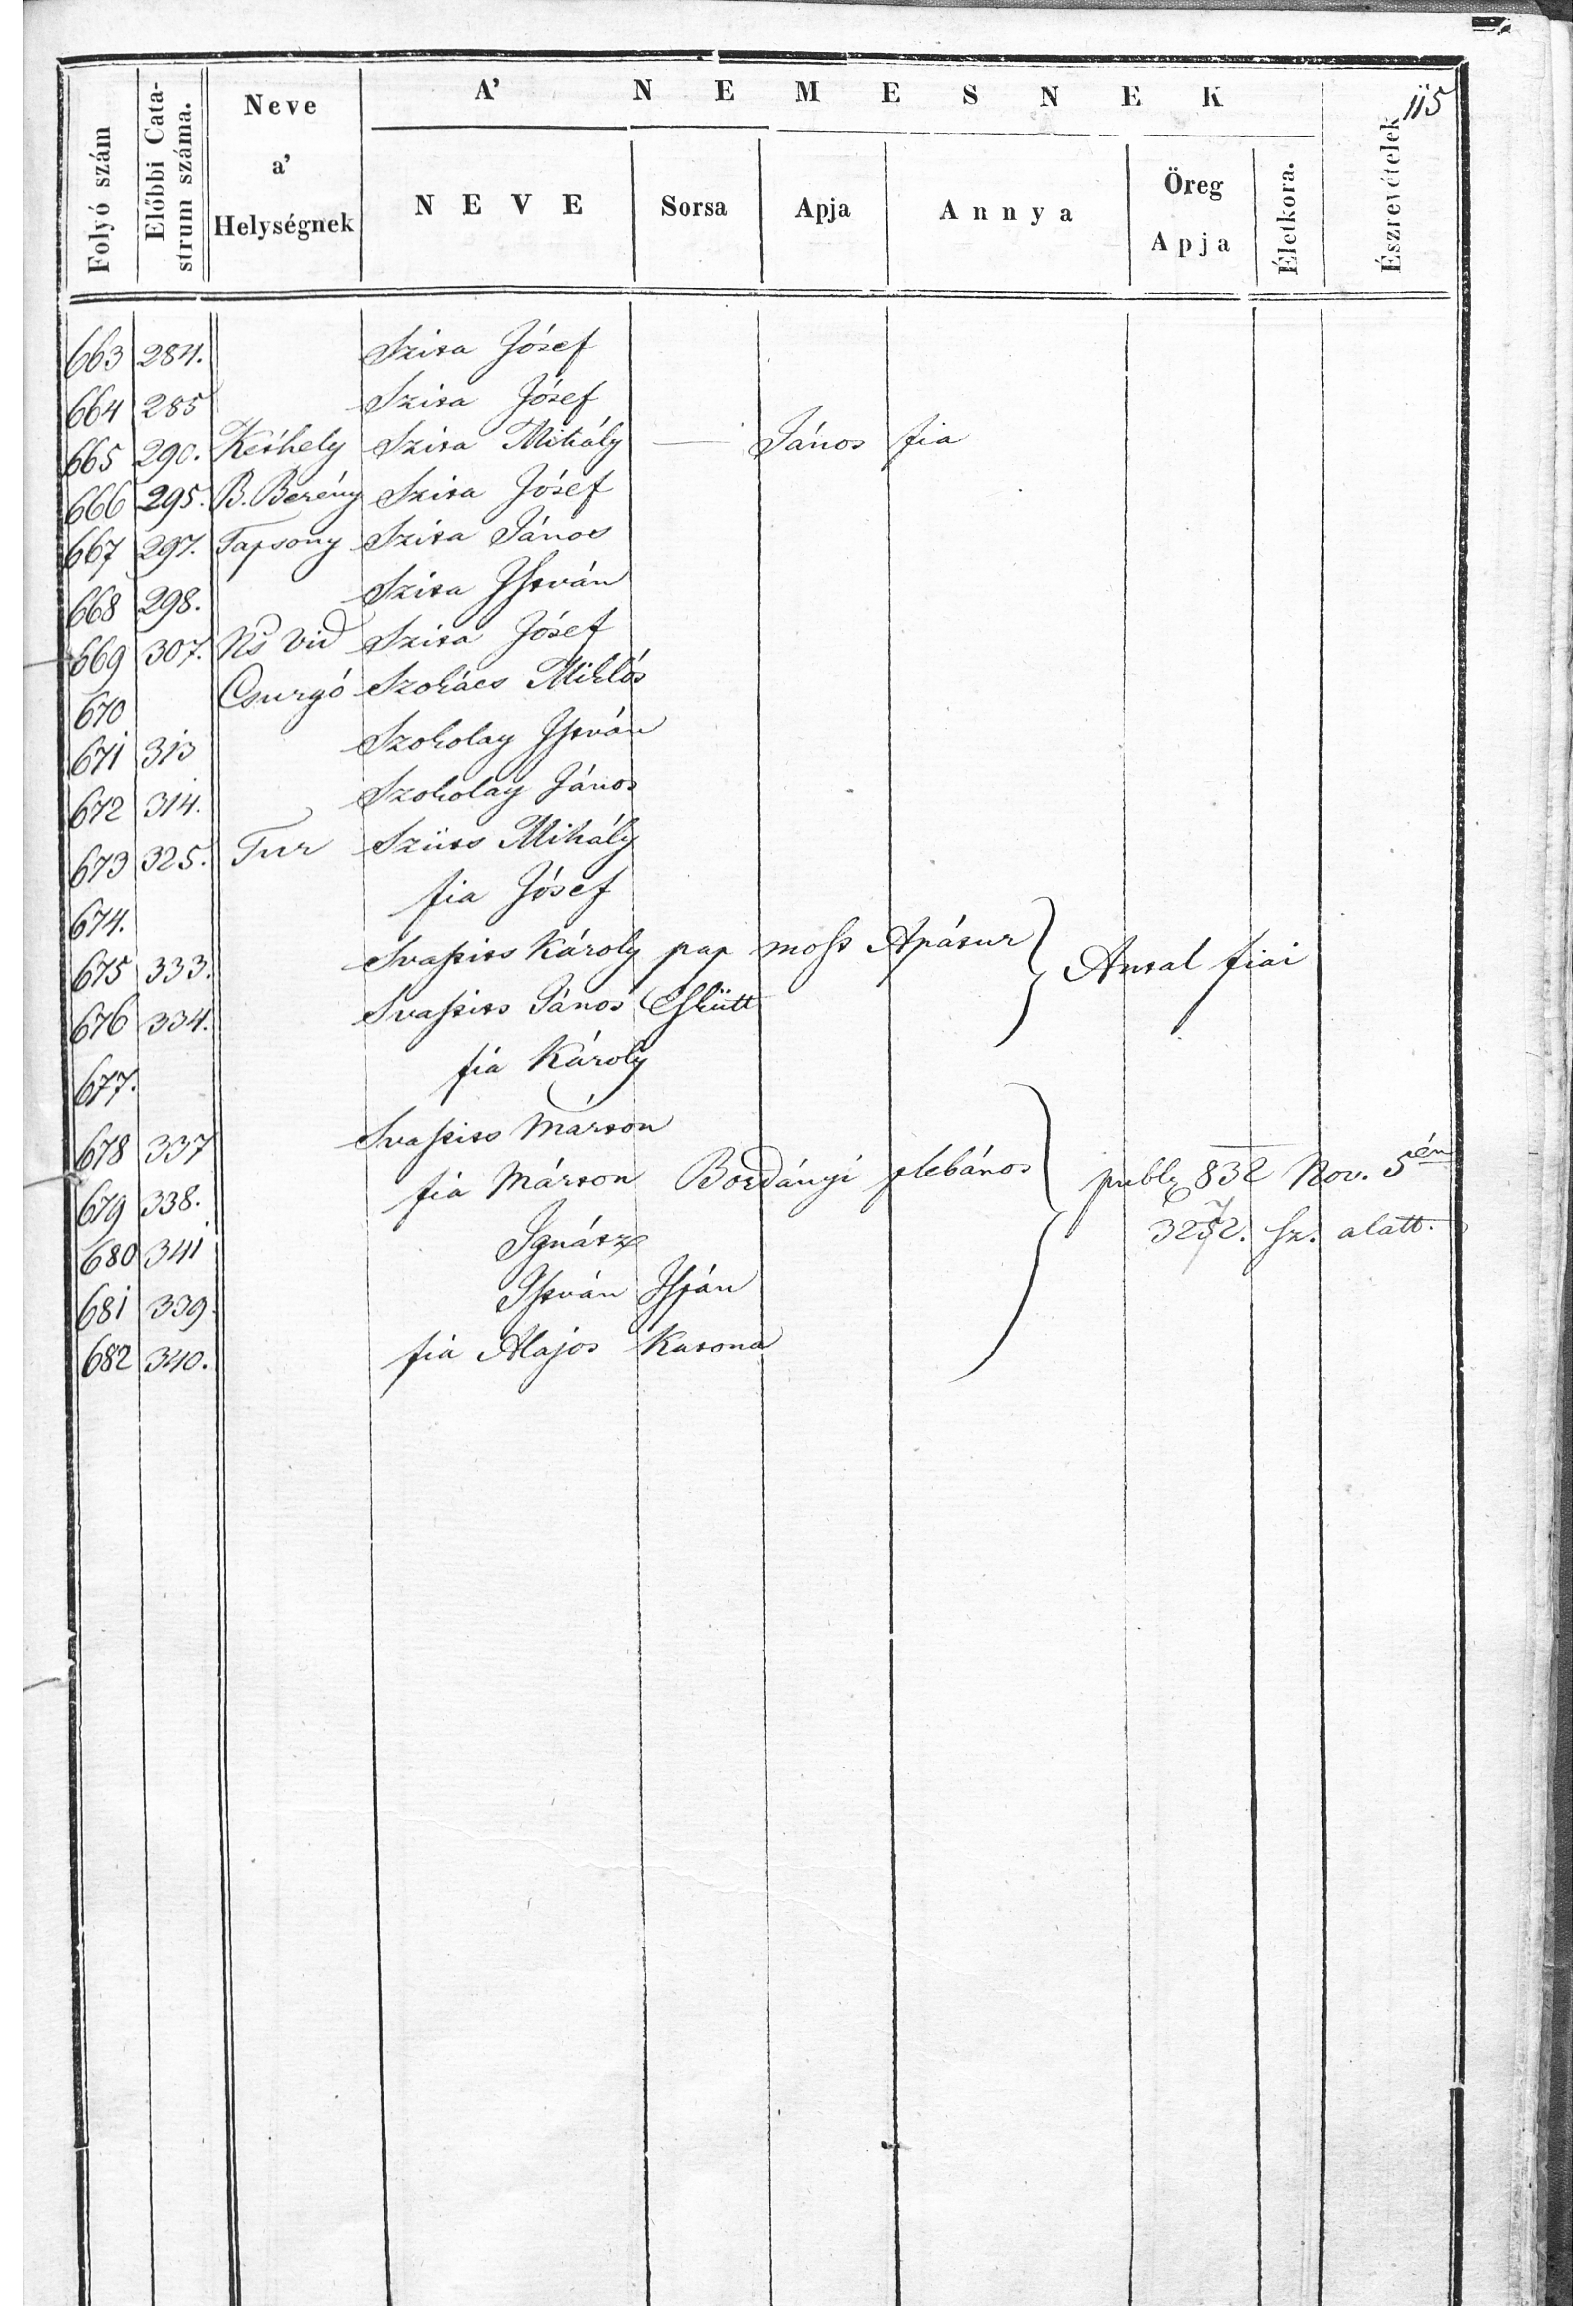 115
A' NEMESNEK
Folyó szám
Előbbi Cata-
strum száma.
Neve
a'
Helységnek
NEVE
Sorsa
Apja
Annya
Öreg
Apja
Életkora.
Észrevételek
663 284. Szita Jósef
664 285 Szita Jósef
665 290. Kéthely Szita Mihály — János fia
666 295. B. Berény Szita Jósef
667 297. Tapsony Szita János
668 298. Szita István
669 307. Ns Vid Szita Jósef
670 Csurgó Szokács Miklós
671 313 Szokolay István
672 314. Szokolay János
673 325. Tur Szüts Mihály
674. fia Jósef
675 333. Svastits Károly pap most Apátur } Antal fiai
676 334. Svastits János Eskütt
677. fia Károly
678 337 Svastits Márton
679 338. fia Márton Bogdányi plebános } publ 832 Nov. 5én
680 341 Ignátz 3272. sz. alatt.
681 339. István Ispán
682 340. fia Alajos Katona